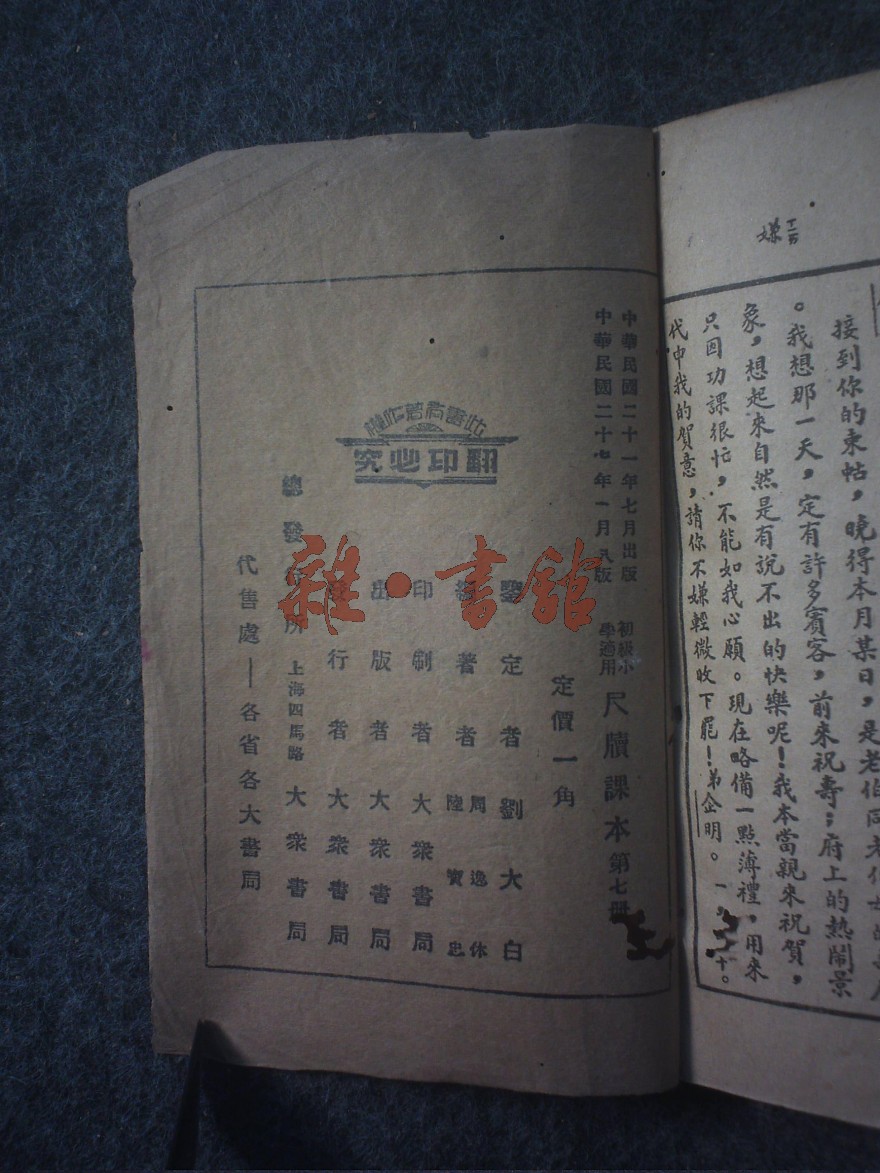 嫌
接到你的柬帖,曉得本月某日,是老伯同老伯母的
。我想那一天,定有許多賓客,前來祝壽;府上的熱鬧景
象,想起來自然是有說不出的快樂呢!我本當親來祝賀,
只因功課很忙,不能如我心願。現在略備一點薄禮,用來
代申我的賀意,請你不嫌輕微收下罷!弟企明。一
中華民國二十一年七月出版
中華民國二十七年一月八版
初級小
學適用
尺牘課本第七冊
定價一角
鑒定者劉大白
編著者
周逸休
陸寶忠
印制者大衆書局
出版者大衆書局
發行者大衆書局
總發行所上海四馬路大衆書局
代售處—各省各大書局
此書有著作權
翻印必究
雜·書館